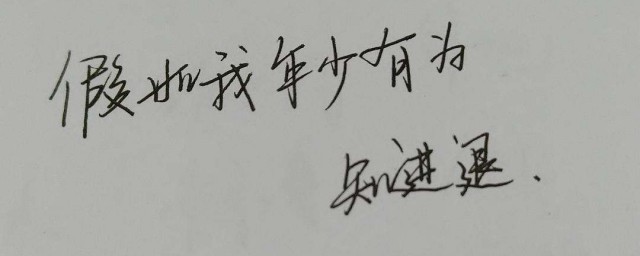 假如我年少有为
知进退.